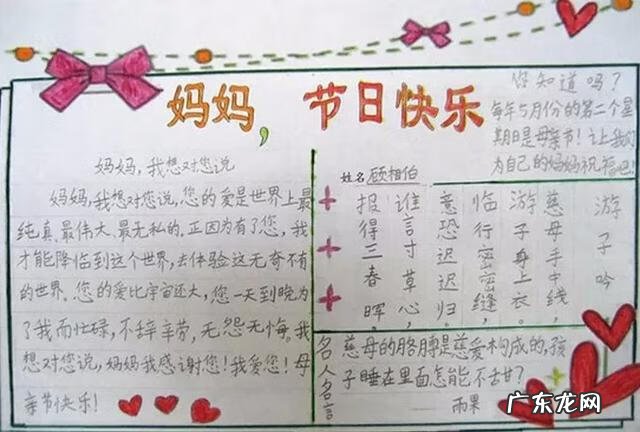 妈妈，节日快乐
你知道吗？
每年5月份的第二个星
期日是母亲节！让我们
为自己的妈妈祝福吧！
妈妈，我想对您说
妈妈，我想对您说，您的爱是世界上最
纯真、最伟大、最无私的。正因为有了您，我
才能降临到这个世界，去体验这无奇不有
的世界。您的爱比宇宙还大，您一天到晚为
了我而忙碌，不辞辛劳，无怨无悔。我
想对您说，妈妈我感谢您！我爱您！母
亲节快乐！
姓名 顾相伯
游子吟
慈母手中线，
游子身上衣。
临行密密缝，
意恐迟迟归。
谁言寸草心，
报得三春晖。
名人名言
慈母的胳膊是慈爱构成的，孩
子睡在里面怎能不舌甘？
雨果
广东龙网